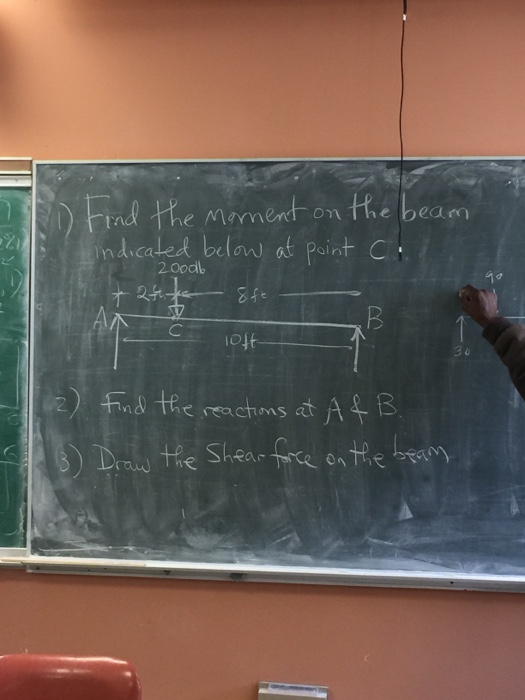 1) Find the Moment on the beam
indicated below at point C
2000lb
2ft 8ft
A B
C
10ft
2) Find the reactions at A & B.
3) Draw the Shear force on the beam
90
30